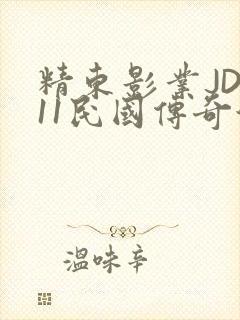 精東影業JD
11民國傳奇
溫味辛